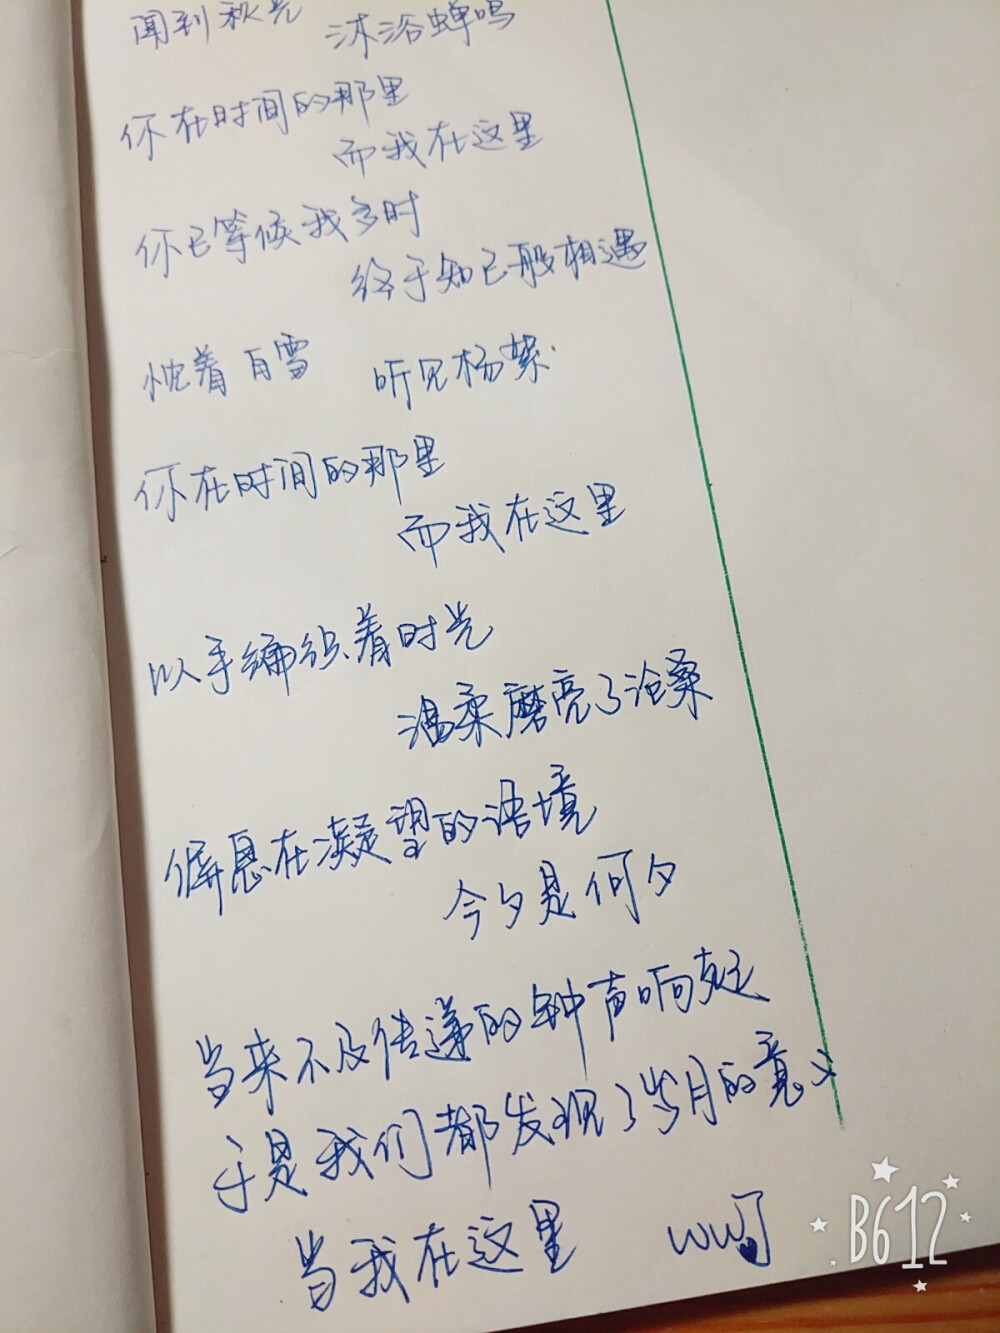 闻到秋光 沐浴蝉鸣
你在时间的那里
而我在这里
你已等候我多时
终于知已般相遇
枕着白雪 听见杨絮
你在时间的那里
而我在这里
以手编织着时光
温柔磨亮了沧桑
屏息在凝望的语境
今夕是何夕
当来不及传递的钟声响起
于是我们都发现了岁月的意义
当我在这里 wwJ
B612